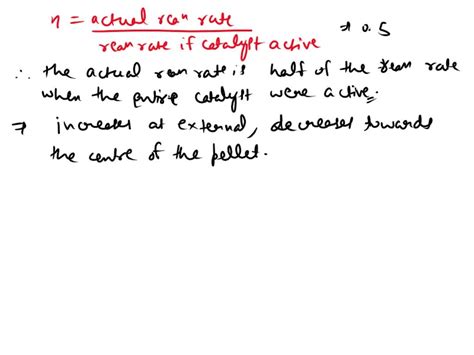 η = actual rxn rate / rxn rate if catalyst active ⇒ 0.5
∴ the actual rxn rate is half of the rxn rate
when the entire catalyst were active.
⇒ increases at external, decreases towards
the centre of the pellet.